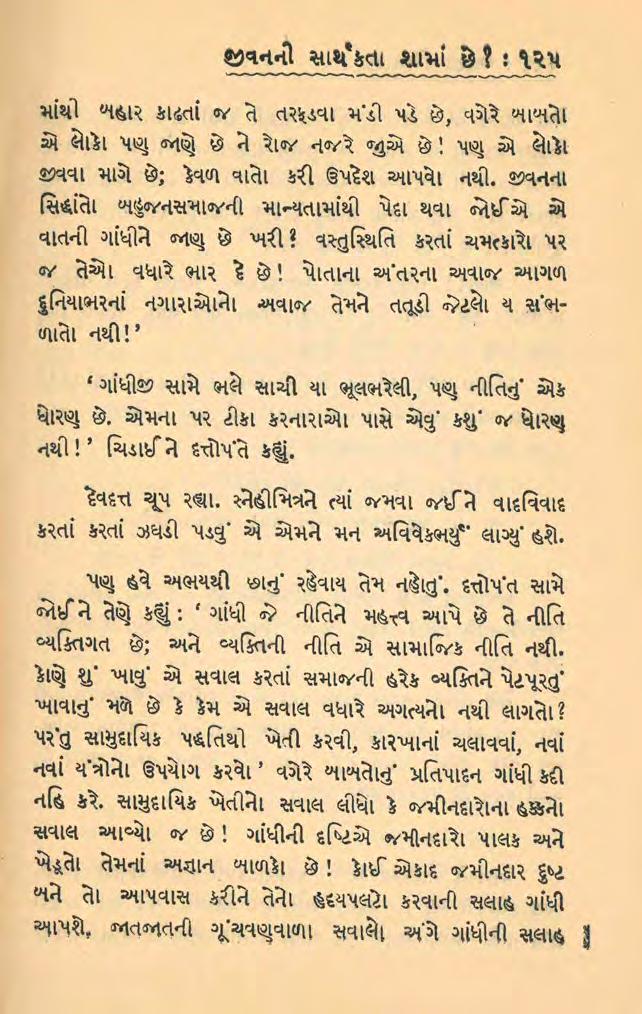 જીવનની સાર્થકતા શામાં છે? : ૧૨૫
માંથી બહાર કાઢતાં જ તે તરફડવા મંડી પડે છે, વગેરે બાબતો
એ લોકો પણ જાણે છે ને રોજ નજરે જુએ છે! પણ એ લોકો
જીવવા માગે છે; કેવળ વાતો કરી ઉપદેશ આપવો નથી. જીવનના
સિદ્ધાંતો બહુજનસમાજની માન્યતામાંથી પેદા થવા જોઈએ એ
વાતની ગાંધીને જાણ છે ખરી? વસ્તુસ્થિતિ કરતાં ચમત્કારો પર
જ તેઓ વધારે ભાર દે છે! પોતાના અંતરના અવાજ આગળ
દુનિયાભરનાં નગારાઓનો અવાજ તેમને તતૂડી જેટલો ય સંભ-
ળાતો નથી!’
‘ગાંધીજી સામે ભલે સાચી યા ભૂલભરેલી, પણ નીતિનું એક
ધોરણ છે. એમના પર ટીકા કરનારાઓ પાસે એવું કશું જ ધોરણ
નથી!’ ચિડાઈને દત્તોપંતે કહ્યું.
દેવદત્ત ચૂપ રહ્યા. સ્નેહીમિત્રને ત્યાં જમવા જઈને વાદવિવાદ
કરતાં કરતાં ઝઘડી પડવું એ એમને મન અવિવેકભર્યું લાગ્યું હશે.
પણ હવે અભયથી છાનું રહેવાય તેમ નહોતું. દત્તોપંત સામે
જોઈને તેણે કહ્યું : ‘ગાંધી જે નીતિને મહત્ત્વ આપે છે તે નીતિ
વ્યક્તિગત છે; અને વ્યક્તિની નીતિ એ સામાજિક નીતિ નથી.
કોણે શું ખાવું એ સવાલ કરતાં સમાજની હરેક વ્યક્તિને પેટપૂરતું
ખાવાનું મળે છે કે કેમ એ સવાલ વધારે અગત્યનો નથી લાગતો?
પરંતુ સામુદાયિક પદ્ધતિથી ખેતી કરવી, કારખાનાં ચલાવવાં, નવાં
નવાં યંત્રોનો ઉપયોગ કરવો’ વગેરે બાબતોનું પ્રતિપાદન ગાંધી કદી
નહિ કરે. સામુદાયિક ખેતીનો સવાલ લીધો કે જમીનદારોના હક્કનો
સવાલ આવ્યો જ છે! ગાંધીની દૃષ્ટિએ જમીનદારો પાલક અને
ખેડૂતો તેમનાં અજ્ઞાન બાળકો છે! કોઈ એકાદ જમીનદાર દુષ્ટ
બને તો આપવાસ કરીને તેનો હૃદયપલટો કરવાની સલાહ ગાંધી
આપશે. જાતજાતની ગૂંચવણવાળા સવાલો અંગે ગાંધીની સલાહ